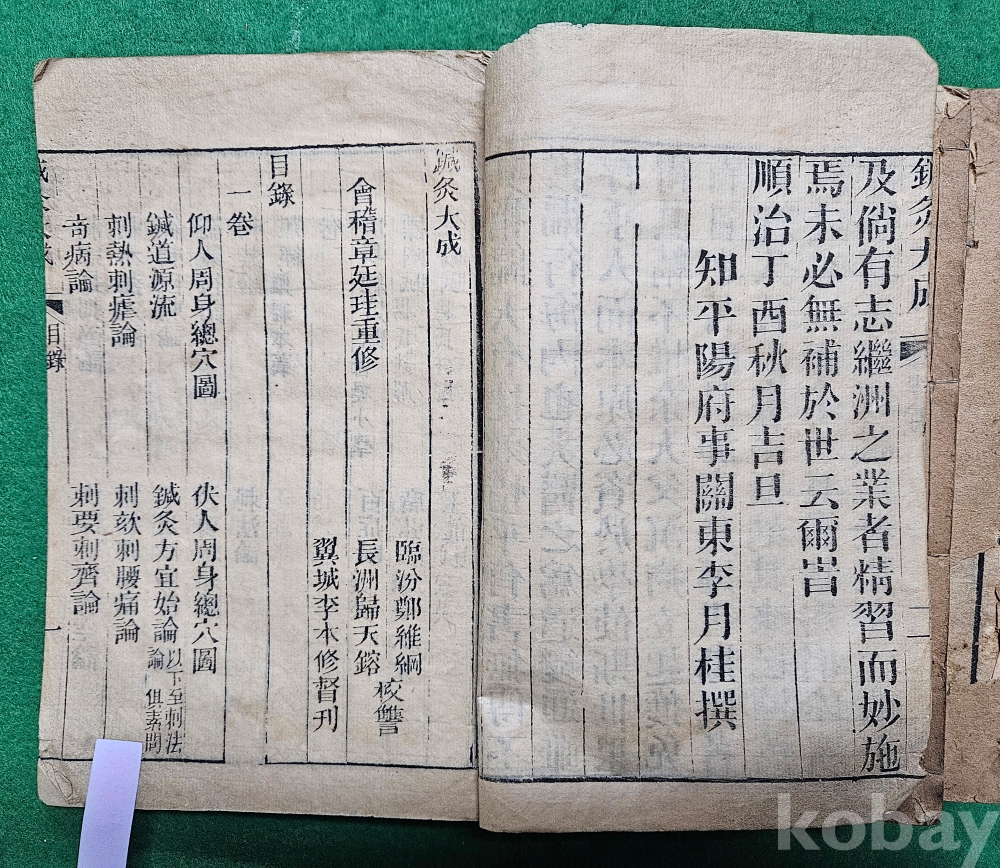 鍼灸大成
及倘有志繼洲之業者精習而妙施
焉未必無補於世云爾旹
順治丁酉秋月吉旦
知平陽府事關東李月桂撰
鍼灸大成
臨汾鄭維綱
會稽章廷珪重修
長洲歸天鎔
校讐
翼城李本修督刊
目錄
一卷
仰人周身總穴圖
伏人周身總穴圖
鍼道源流
鍼灸方宜始論
以下至刺法
論俱素問
刺熱刺瘧論
刺欬刺腰痛論
奇病論
刺要刺齊論
目錄
一
kobay